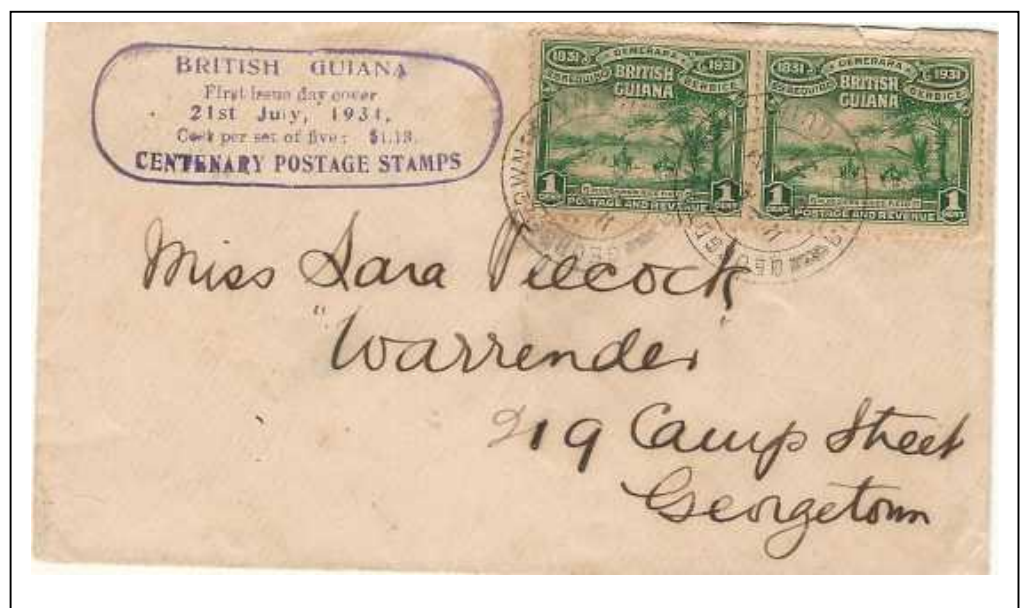 BRITISH GUIANA
First issue day cover
21st July, 1931.
Cost per set of five: $1.13.
CENTENARY POSTAGE STAMPS
1831 DEMERARA 1931
ESSEQUIBO BERBICE
BRITISH
GUIANA
1 CENT 1 CENT
POSTAGE AND REVENUE
1831 DEMERARA 1931
ESSEQUIBO BERBICE
BRITISH
GUIANA
1 CENT 1 CENT
POSTAGE AND REVENUE
Miss Sara
"Warrender"
219 Camp Street
Georgetown